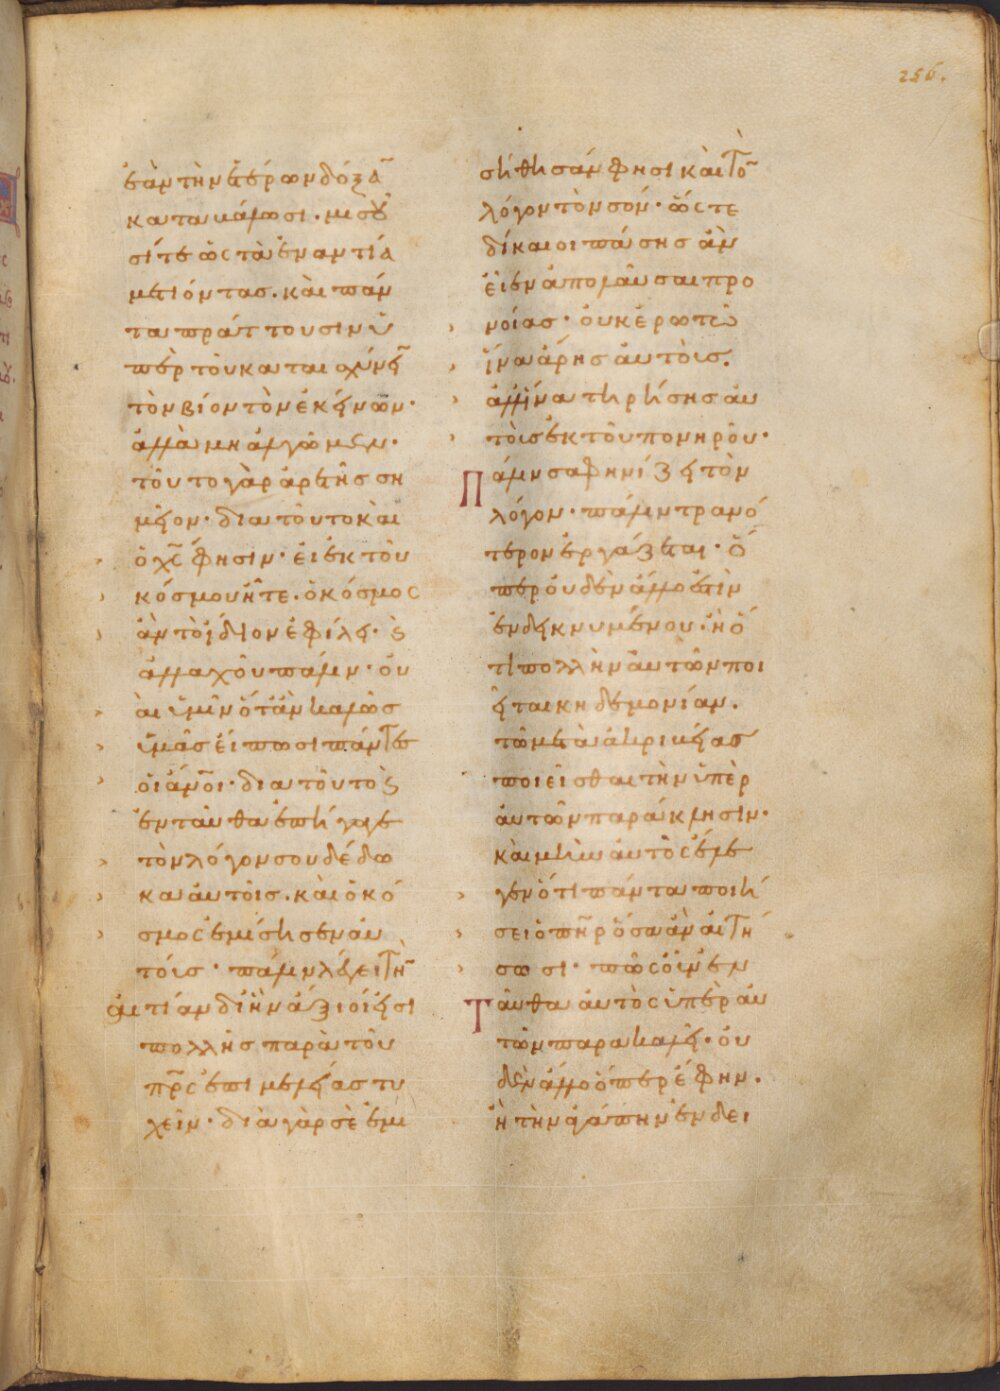 256.
ἐὰν τὴν ἑτέρων δόξα
καταβάλωσι. μισοῦ
σί τε ὡς τὰ ἐναντία
μετιόντας. καὶ πάν
τα πράττουσιν ὑ
πὲρ τοῦ καταισχύνει
τὸν βίον τὸν ἐκείνων·
ἀλλὰ μὴ ἀλγῶμεν·
τοῦτο γὰρ ἀρετῆς ση
μεῖον· διὰ τοῦτο καὶ
ὁ χς φησιν· εἰ ἐκ τοῦ
κόσμου ἦτε. ὁ κόσμος
ἂν τὸ ἴδιον ἐφίλει· ϗ
ἀλλαχοῦ πάλιν· οὐ
αὶ ὑμῖν ὅταν καλῶς
ὑμᾶς εἴπωσι πάντες
οἱ ἄνοι· διὰ τοῦτο ϗ
ἐνταῦθα ἐπήγαγε
τὸν λόγον σου δέδω
κα αὐτοῖς. καὶ ὁ κό
σμος ἐμίσησεν αὐ
τούς· πάλιν λέγει τὴν
αἰτίαν δι ἣν ἄξιοί εἰσι
πολλῆς παρὰ τοῦ
πρς ἐπιμελείας τυ
χεῖν· διὰ γὰρ σὲ ἐμι
σήθησάν φησι καὶ τὸν
λόγον τὸν σόν· ὥστε
δίκαιοι πάσης ἂν
εἶεν ἀπολαῦσαι προ
νοίας· οὐκ ἐρωτῶ
ἵνα ἄρης αὐτούς.
ἀλλ ἵνα τηρήσης αὐ
τοὺς ἐκ τοῦ πονηροῦ·
Πάλιν σαφηνίζει τὸν
λόγον· πάλιν τρανό
τερον ἐργάζεται· ὅ
περ οὐδὲν ἄλλο ἐστὶν
ἐνδεικνυμένου· ἢ ὅ
τι πολλὴν αὐτῶν ποι
εῖται κηδεμονίαν.
τῶ μετὰ ἀκριβείας
ποιεῖσθαι τὴν ὑπὲρ
αὐτῶν παράκλησιν·
καὶ μὴν αὐτὸς ἔλε
γεν ὅτι πάντα ποιή
σει ὁ πηρ ὅσα ἂν αἰτή
σωσι· πῶς οὖν ἐν
Ταῦθα αὐτὸς ὑπὲρ αὐ
τῶν παρακαλεῖ· οὐ
δὲν ἄλλο ὅπερ ἔφην.
ἢ τὴν ἀγάπην ἐνδει